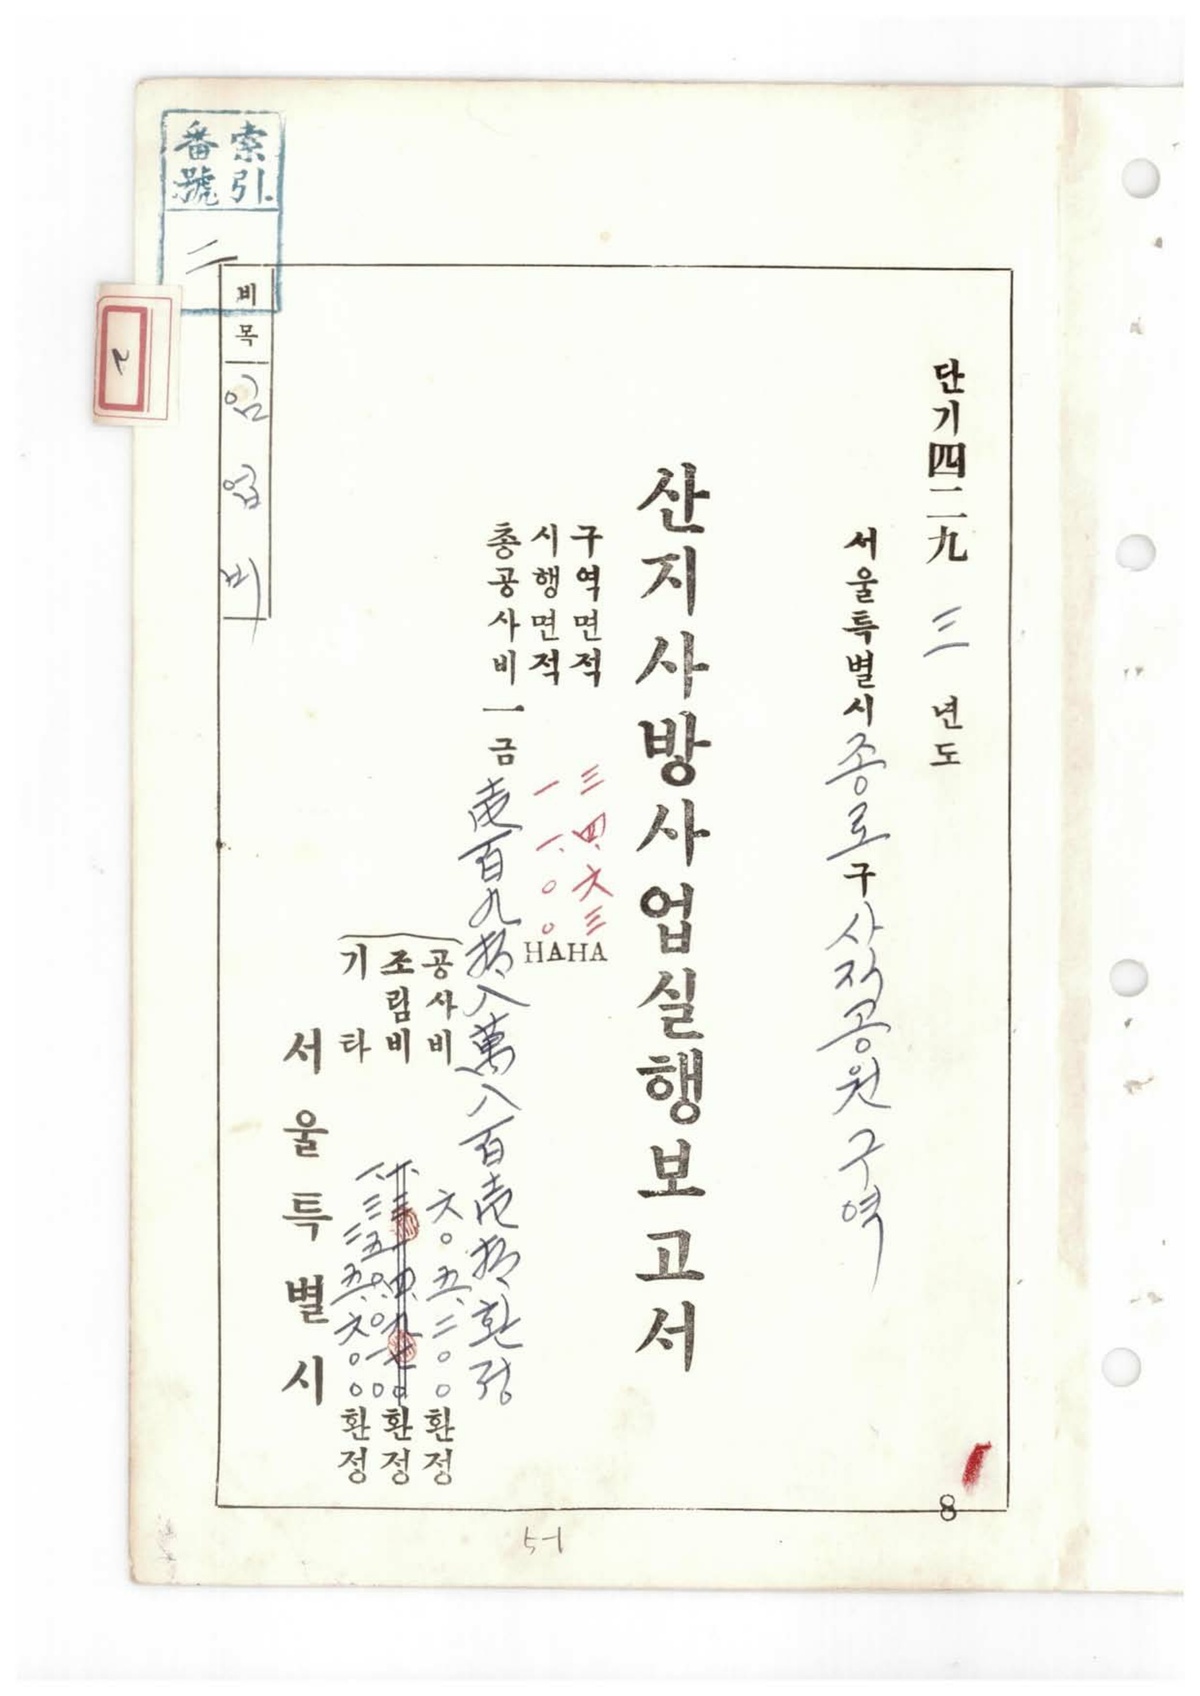 단기四二九三년도
서울특별시종로구사직공원구역
산지사방사업실행보고서
구역면적 三四.六三HA
시행면적 一一.〇〇HA
총공사비一금壱百九拾八萬八百壱拾환정
공사비 六〇五.二〇〇환정
조림비 환정
기타 환정
서울특별시
비목 임업비
索引
番號
二
2
8
5-1